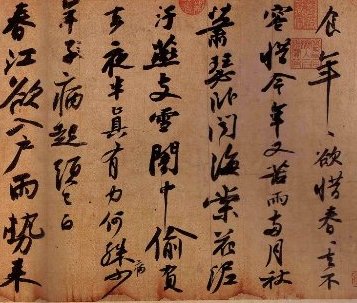 食年〻欲惜春〻去不
容惜今年又苦雨兩月秋
蕭瑟卧聞海棠花泥
汙燕支雪闇中偷負
去夜半真有力何殊病少
年子病起頭已白
春江欲入戶雨勢來